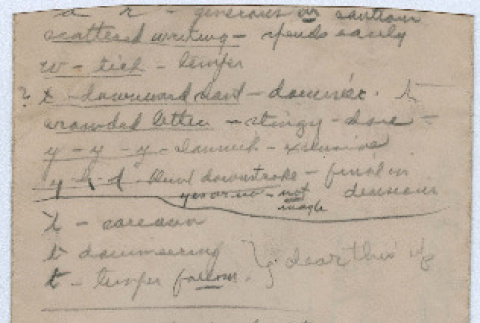 a r - generous or cautious
scattered writing - spends easily
w - tick - temper
? t - downward slant - domineer. t
crowded letter - stingy - close -
y - y - y - clannish - exclusive
y - h - d - blunt downstroke - final in
yes or no - not decisions
maybe
t - sarcasm
t domineering
t - temper } clear this up